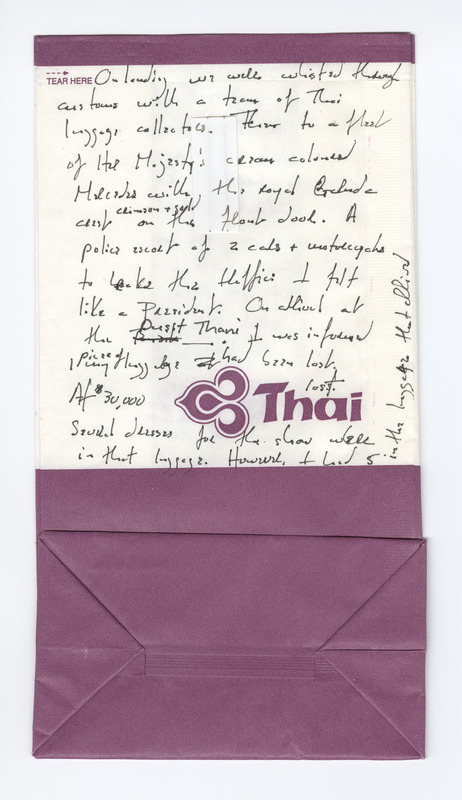 TEAR HERE
On landing we were whisked through
customs with a team of Thai
luggage collectors. Then to a fleet
of Her Majesty's cream coloured
Mercedes with the royal
crest crimson + gold on the front door. A
police escort of 2 cars + motorcycles
to the traffic I felt
like a President. On arrival at
the Dusit Thani, I was informed
1 piece of my luggage had been lost.
lost.
A $30,000
Thai
Several dresses for the show were
in that luggage. However, I had 5
in the luggage that arrived